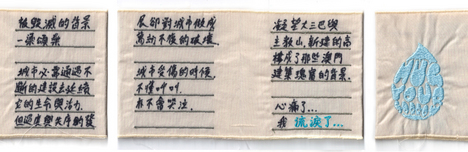 被毀滅的背景
一梁頌業
城市必需透過不
斷的建設去延續
它的生命與活力.
但過度與失序的發
展卻對城市做成
萬劫不復的破壞.
城市受傷的时候.
不懂叫叫.
亦不會哭泣.
凝望大三巴與
主教山.新建的高
樓成了那些澳門
建築瑰寶的背景.
心痛了...
我 流淚了...